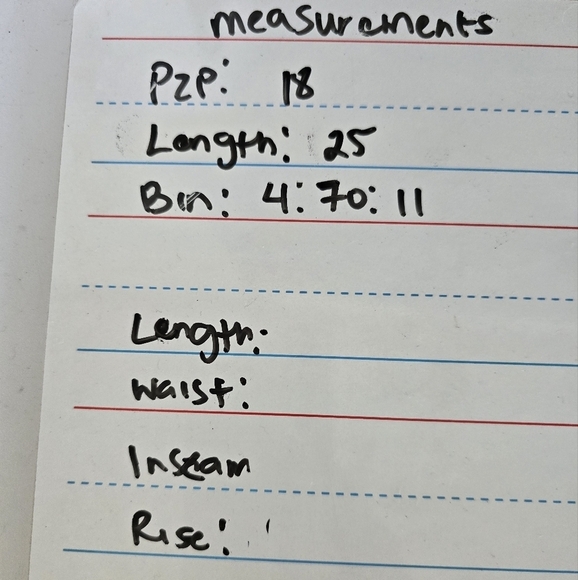 measurements
P2P: 18
Length: 25
Bin: 4:70:11
Length:
Waist:
Inseam
Rise: